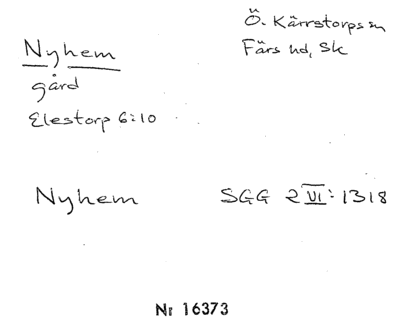 Nyhem
gård
Elestorp 6:10
Ö. Kärrstorps sn
Färs hd, Sk
Nyhem SGG 2 VI: 1318
Nr 16373